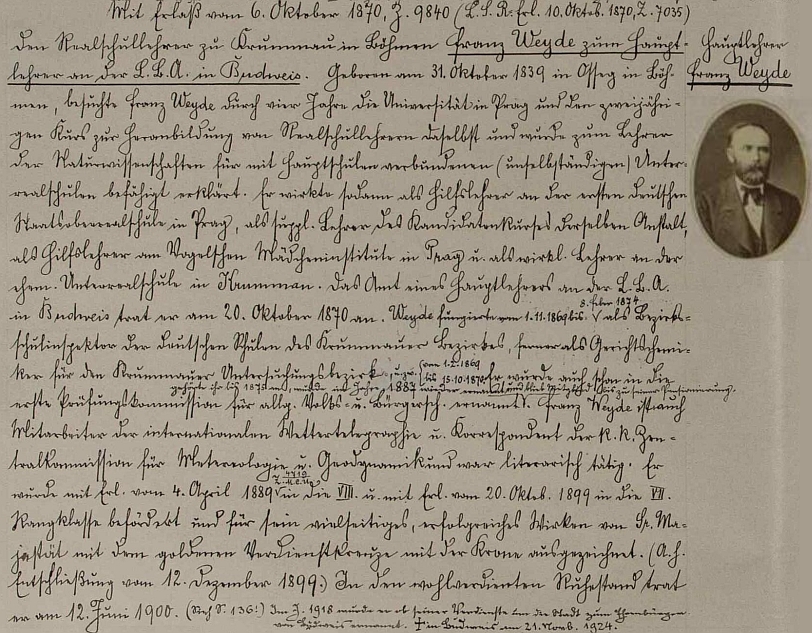 Mit Erlaß vom 6. Oktober 1870, Z. 9840 (L.S.R. Erl. 10. Oktob. 1870, Z. 7035)
den Realschullehrer zu Krummau in Böhmen Franz Weyde zum Haupt-
lehrer an der L.B.A. in Budweis. Geboren am 31. Oktober 1839 in Ossegg in Böh-
Hauptlehrer
Franz Weyde
men, besuchte Franz Weyde durch vier Jahre die Universität in Prag und den zweijähri-
gen Kurs zur Heranbildung von Realschullehrern daselbst und wurde zum Lehrer
der Naturwissenschaften für mit Hauptschulen verbundenen (unselbständigen) Unter-
realschulen befähigt erklärt. Er wirkte sodann als Hilfslehrer an der ersten deutschen
Staatsoberrealschule in Prag, als suppl. Lehrer des Kandidatenkurses derselben Anstalt,
als Hilfslehrer am Vogelschen Mädcheninstitute in Prag u. als wirkl. Lehrer an der
chem. Unterrealschule in Krummau. Das Amt eines Hauptlehrers an der L.B.A.
8. Feber 1874
in Budweis trat er am 20. Oktober 1870 an. Weyde fungierte vom 1.11.1869 bis als Bezirks-
schulinspektor der deutschen Schulen des Krummauer Bezirkes, ferner als Gerichtschemi-
(vom 1.2.1869
ker für den Krummauer Untersuchungsbezirk u. zw. bis 15.10.1870. Er wurde auch schon in die
gehörte ihr bis 1875 an, wurde im Jahre 1887 wieder ernannt und blieb Mitglied bis zu seiner Pensionierung.
erste Prüfungskommission für allg. Volks- u. Bürgersch. ernannt. Franz Weyde ist auch
Mitarbeiter der internationalen Wettertelegraphie u. Korrespondent der K.K. Zen-
tralkommission für Metereologie u. Geodynamik und war literarisch tätig. Er
Z. 4719
wurde mit Erl. vom 4. April 1889 in die VIII. u. mit Erl. vom 20. Oktob. 1899 in die VII.
Rangklasse befördert und für sein vielseitiges, erfolgreiches Wirken von Sr. Ma-
jestät mit dem goldenen Verdienstkreuze mit der Krone ausgezeichnet. (A.h.
Entschließung vom 12. Dezember 1899.) In den wohlverdienten Ruhestand trat
er am 12. Juni 1900. (Sieh S. 136!) Im J. 1918 wurde er ob seiner Verdienste um die Stadt zum Ehrenbürger
von Budweis ernannt. † in Budweis am 21. Novb. 1924.